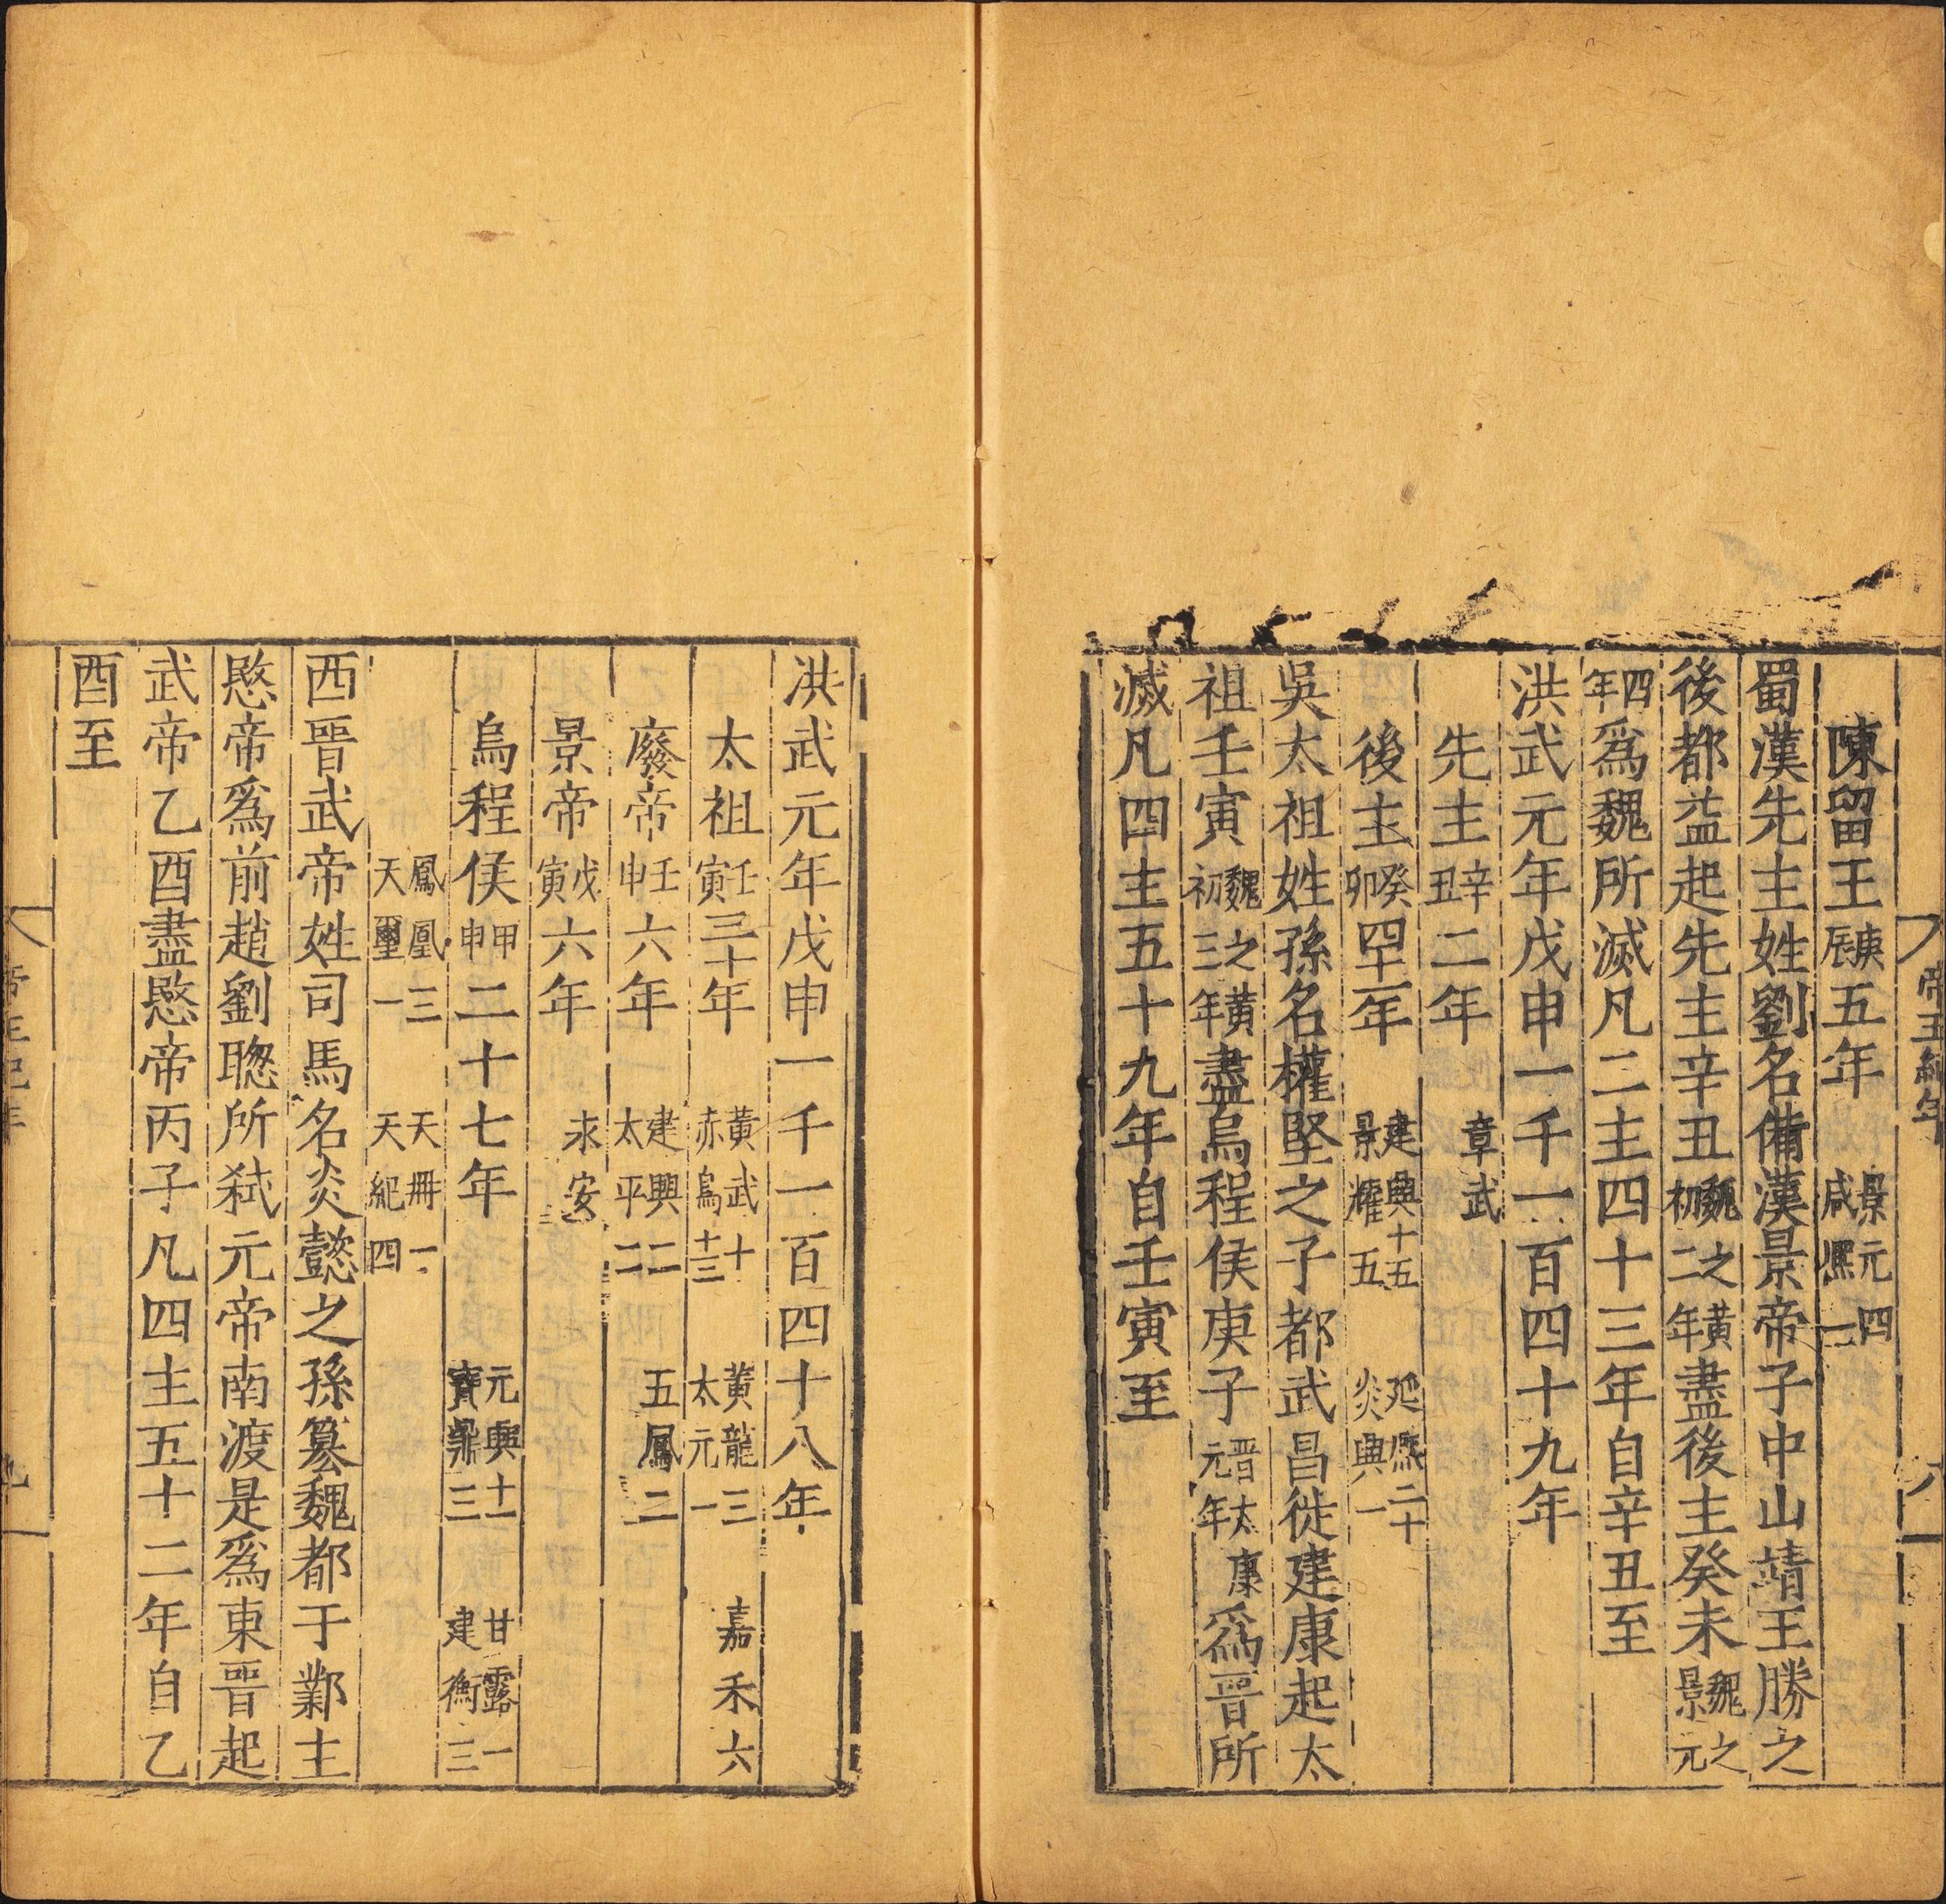 帝王紀年
陳留王庚辰五年 景元四 咸熈一
蜀漢先主姓劉名備漢景帝子中山靖王勝之
後都益起先主辛丑魏之黃初二年盡後主癸未魏之景元
四年爲魏所滅凡二主四十三年自辛丑至
洪武元年戊申一千一百四十九年
先主辛丑二年 章武
後主癸卯四十一年 建興十五 景耀五 延熈二十 炎興一
吳太祖姓孫名權堅之子都武昌徙建康起太
祖壬寅魏之黃初三年盡烏程侯庚子晋太康元年爲晋所
滅凡四主五十九年自壬寅至
洪武元年戊申一千一百四十八年
太祖壬寅三十年 黃武十 赤烏十三 黃龍三 太元一 嘉禾六
廢帝壬申六年 建興二 太平二 五鳳二
景帝戊寅六年 永安
烏程侯甲申二十七年 元興十一 寶鼎三 甘露一 建衡三
鳳凰三 天璽一 天冊一 天紀四
西晋武帝姓司馬名炎懿之孫篡魏都于鄴主
愍帝爲前趙劉聰所弒元帝南渡是爲東晋起
武帝乙酉盡愍帝丙子凡四主五十二年自乙
酉至
帝王紀年 九